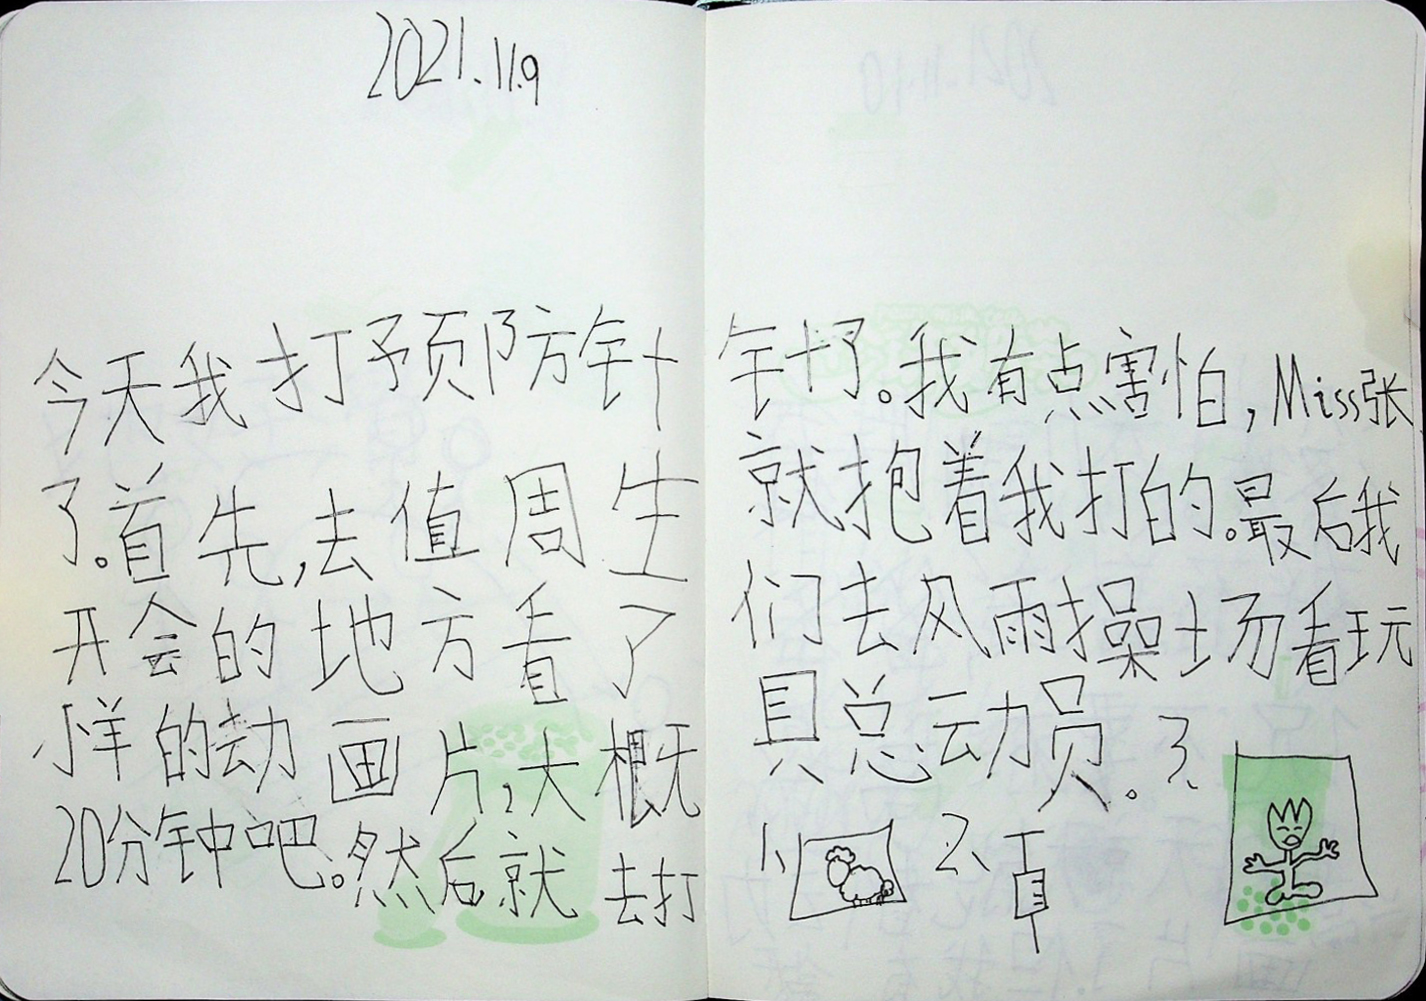 2021.11.9
今天我打予页防针
了。首先,去值周生
开会的地方看了
小羊的动画片,大概
20分钟吧。然后就去打
针了。我有点害怕,Miss张
就抱着我打的。最后我
们去风雨操场看玩
具总动员。
1、
2、
3、